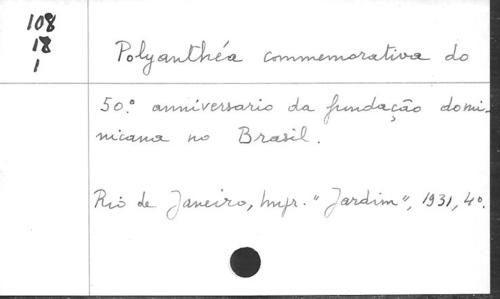 108
18
1
Polyanthéa commemorativa do
50.º anniversario da fundação domi-
nicana no Brasil.
Rio de Janeiro, Impr. "Jardim", 1931, 4º.